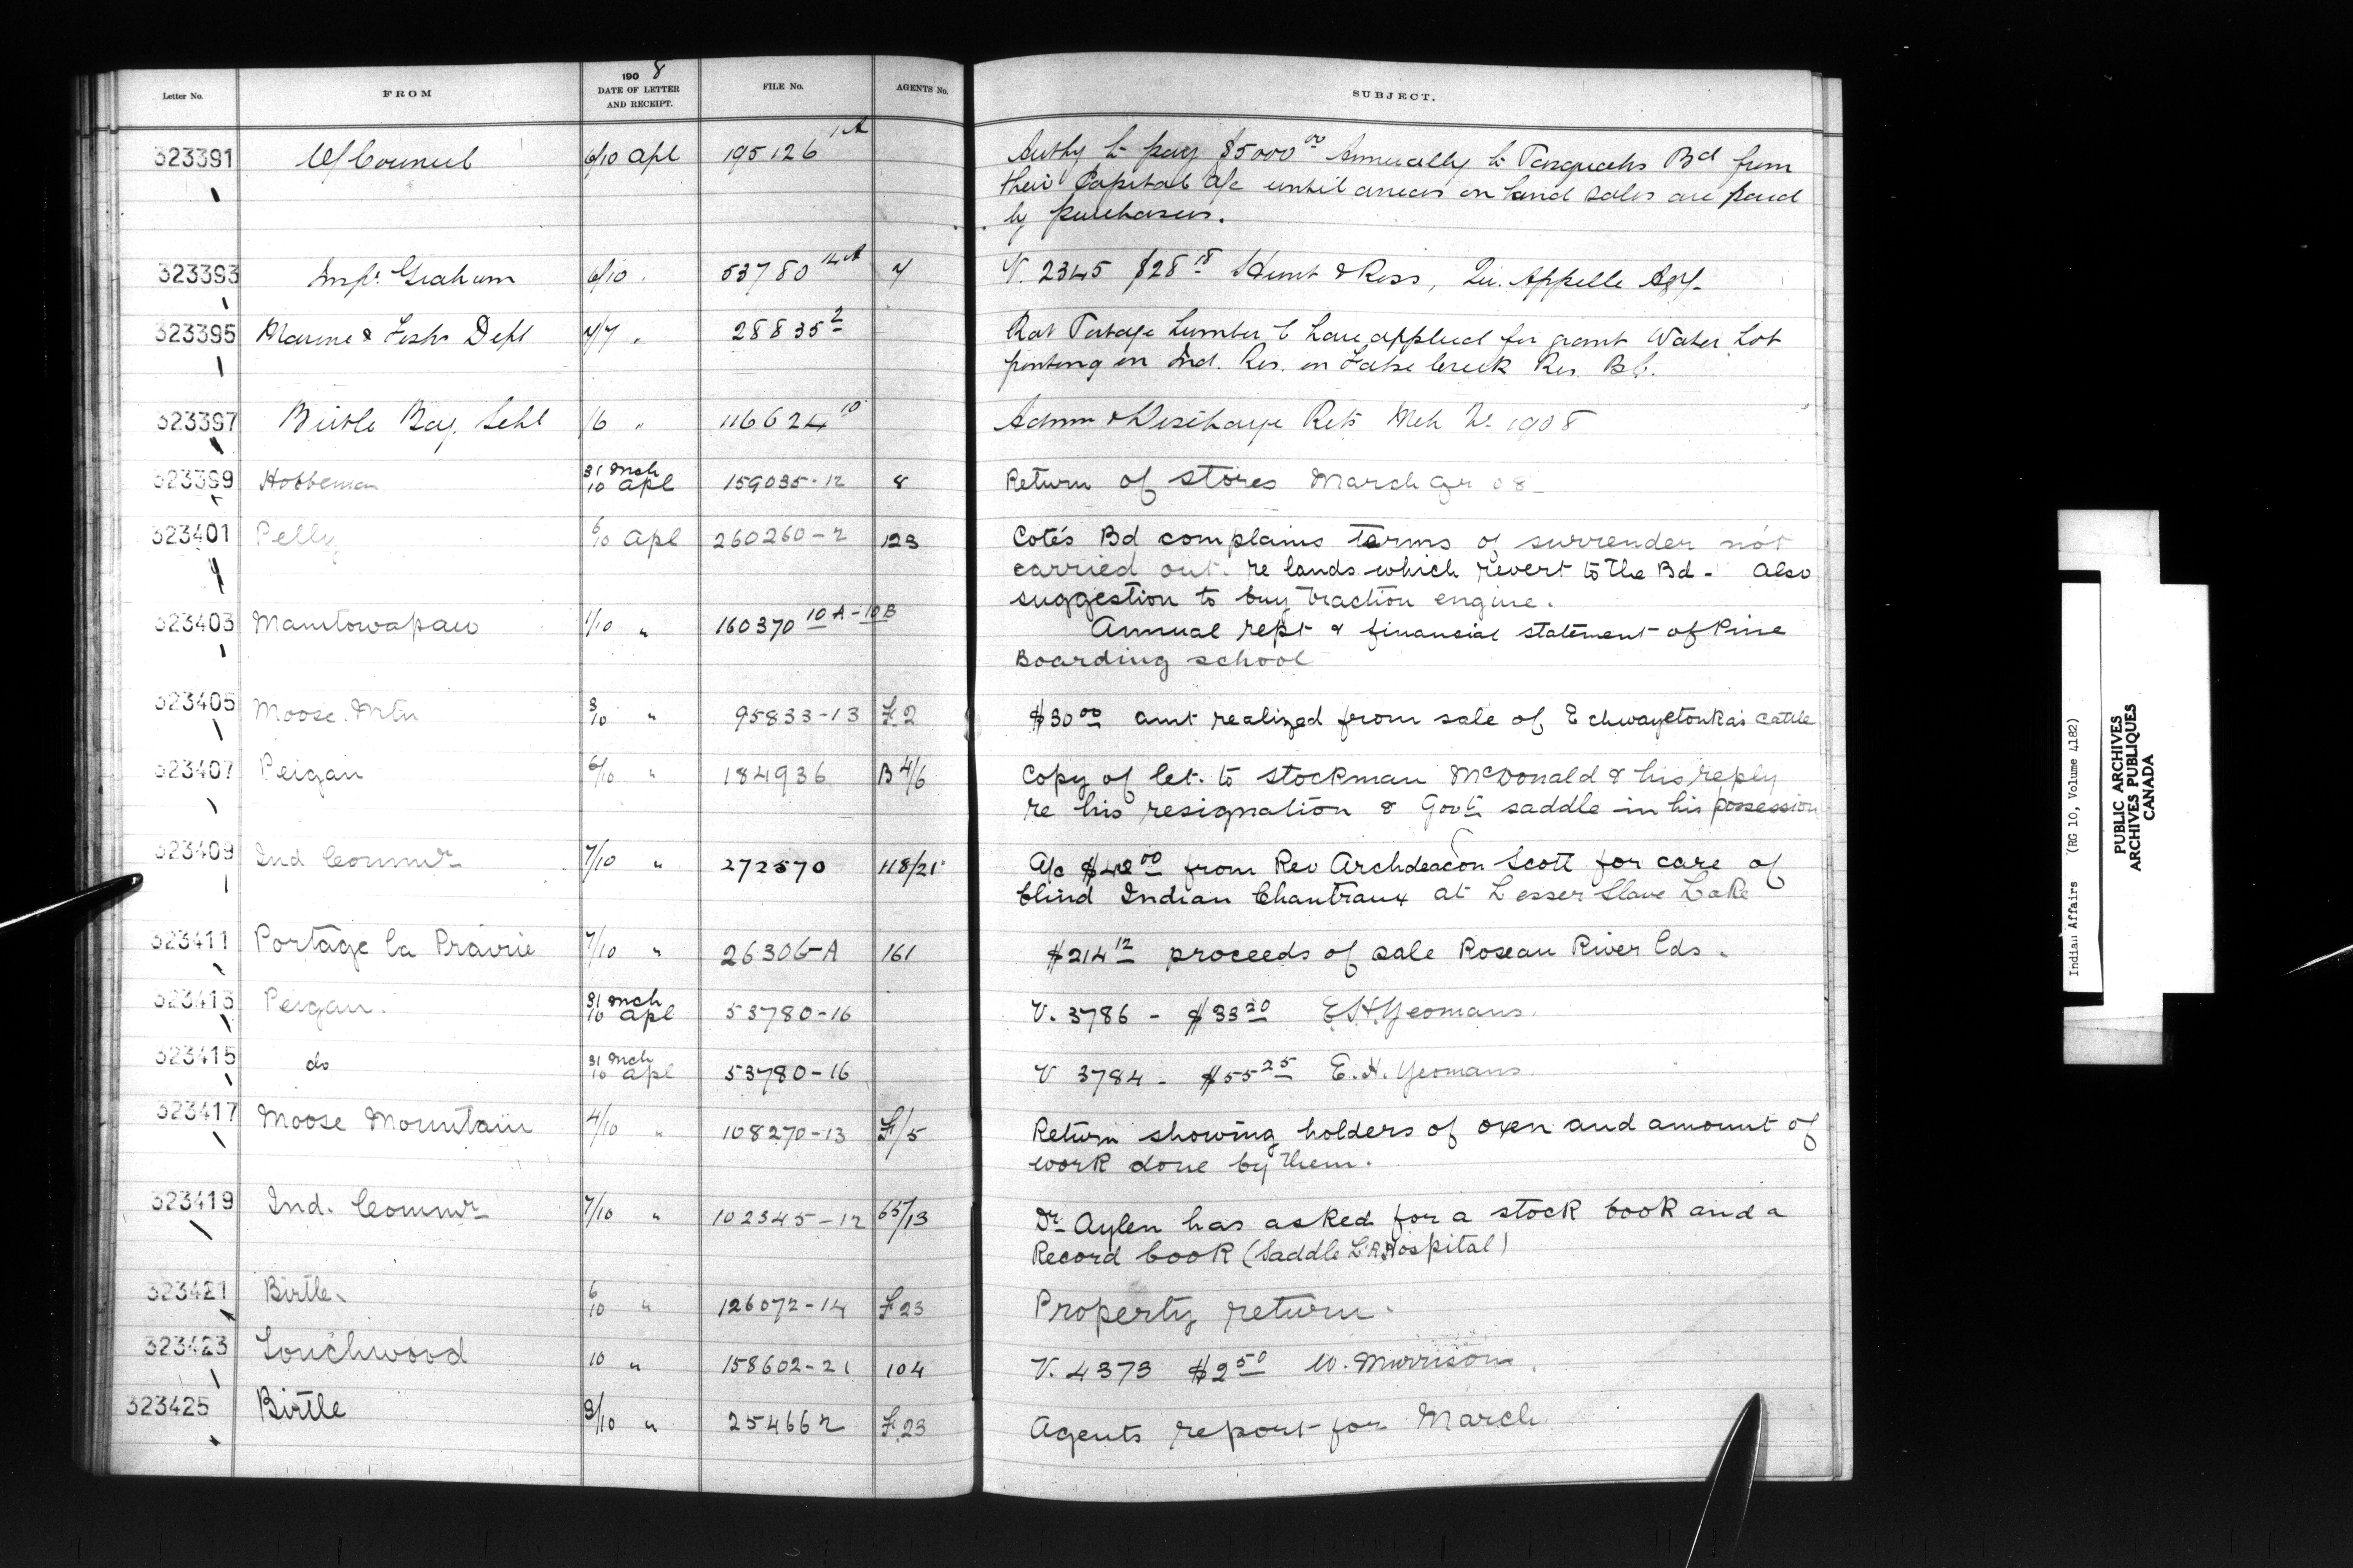 Letter No. FROM 1908 DATE OF LETTER AND RECEIPT. FILE No. AGENTS No. SUBJECT.
323391 O/Council 6/10 Apl 195126 1A Authy to pay $5000 00 Annually to Pasquahs Bd from
their Capital a/c until arrears on land sales are paid
by purchasers.
323393 Insp. Graham 6/10 " 53780 14A 7 V. 2345 $28 18 Hunt & Ross, Qu. Appelle Agy.
323395 Marine & Fishs Dept 7/7 " 28835 2 Rat Portage Lumber C have applied for grant Water Lot
fronting on Ind. Res. on False Creek Res. B.C.
323397 Birtle Bdg. Schl 1/6 " 116624 10 Admn & Discharge Rets Mch Qr 1908
323399 Hobbema 31 Mch 10 Apl 159035-12 8 Return of stores March Qr 08
323401 Pelly 6/10 Apl 260260-2 123 Cote's Bd complains terms of surrender not
carried out re lands which revert to the Bd - Also
suggestion to buy traction engine.
323403 Manitowapaw 1/10 " 160370 10A-10B Annual rept & financial statement of Pine
Boarding school
323405 Moose Mtn 3/10 " 95833-13 F.2 $30 00 amt realized from sale of Echwayetonka's cattle
323407 Peigan 6/10 " 184936 B 4/6 Copy of let. to stockman McDonald & his reply
re his resignation & Govt. saddle in his possession
323409 Ind Commr 7/10 " 272570 118/21 A/c $42 00 from Rev Archdeacon Scott for care of
blind Indian Chantraux at Lesser Slave Lake
323411 Portage la Prairie 7/10 " 26306-A 161 $214 12 proceeds of sale Roseau River lds.
323413 Peigan. 31 Mch 10 Apl 53780-16 V. 3786 - $33 20 E.H. Yeomans.
323415 do 31 Mch 10 Apl 53780-16 V 3784 - $55 25 E.H. Yeomans
323417 Moose Mountain 4/10 " 108270-13 F/5 Return showing holders of oxen and amount of
work done by them.
323419 Ind. Commr 7/10 " 102345-12 65/13 Dr Aylen has asked for a stock book and a
Record book (Saddle Lk Hospital)
323421 Birtle 6/10 " 126072-14 F 23 Property return.
323423 Touchwood 10 " 158602-21 104 V. 4373 $2 50 W. Murrison.
323425 Birtle 8/10 " 254662 F.23 Agents report for March
Indian Affairs (RG 10, Volume 4182)
PUBLIC ARCHIVES
ARCHIVES PUBLIQUES
CANADA